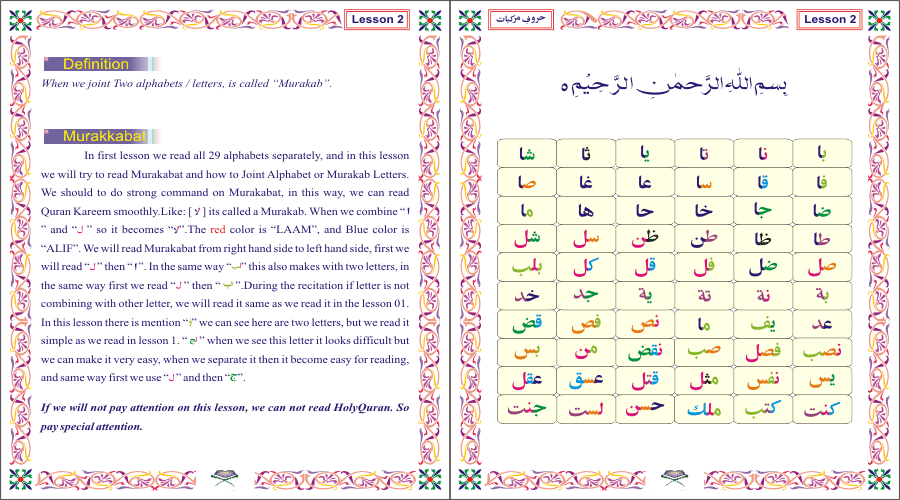 Lesson 2
Definition
When we joint Two alphabets / letters, is called “Murakab”.
Murakkabat
In first lesson we read all 29 alphabets separately, and in this lesson
we will try to read Murakabat and how to Joint Alphabet or Murakab Letters.
We should to do strong command on Murakabat, in this way, we can read
Quran Kareem smoothly.Like: [ لا ] its called a Murakab. When we combine “ا
” and “ل ” so it becomes “لا”.The red color is “LAAM”, and Blue color is
“ALIF”. We will read Murakabat from right hand side to left hand side, first we
will read “ل ” then “ا”. In the same way “لب” this also makes with two letters, in
the same way first we read “ل ” then “ب ”.During the recitation if letter is not
combining with other letter, we will read it same as we read it in the lesson 01.
In this lesson there is mention “” we can see here are two letters, but we read it
simple as we read in lesson 1. “لج ” when we see this letter it looks difficult but
we can make it very easy, when we separate it then it become easy for reading,
and same way first we use “ل ” and then “ج”.
If we will not pay attention on this lesson, we can not read HolyQuran. So
pay special attention.
حروفِ مرکبات
Lesson 2
بِسْمِ اللّٰهِ الرَّحْمٰنِ الرَّحِيْمِ
با نا تا یا ثا شا
فا قا سا عا غا صا
ضا جا خا حا ها ما
طا ظا طن ظن سل شل
صل ضل فل قل کل بلب
بة نة تة یة جد خد
عد یف ما نص فص قض
نصب فصل صب نقض من بس
یس نفس مثل قتل عسق عقل
کنت کتب ملك حسن لست جنت